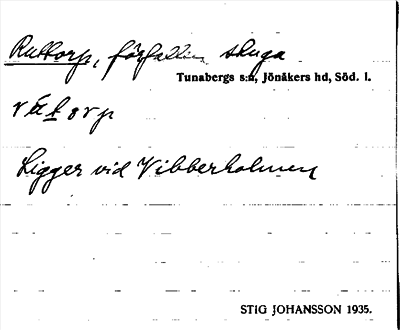 Rattorp, förfallen stuga
Tunabergs s:n, Jönåkers hd, Söd. l.
Ligger vid Vibberholmen
STIG JOHANSSON 1935.